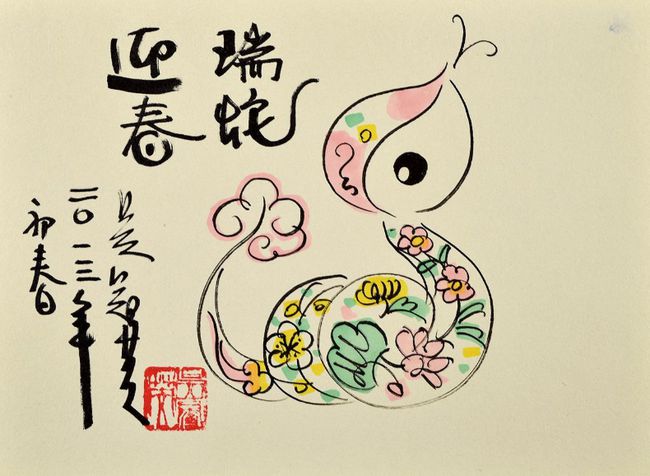 瑞蛇
迎春
二〇一三年
初春日